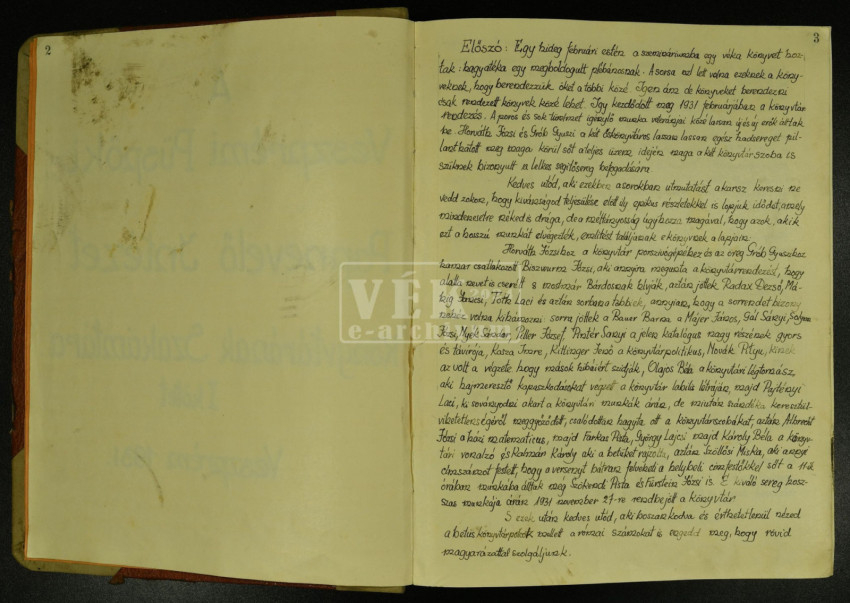 2
3
Előszó: Egy hideg februári estén a szemináriumba egy véka könyvet hoz-
tak: hagyatéka egy megboldogult plébánosnak. A sorsa az lett volna ezeknek a köny-
veknek, hogy berendezzük őket a többi közé. Igen ám, de könyveket berendezni
csak rendezett könyvek közé lehet. Így kezdődött meg 1931 februárjában a könyvtár
rendezés. A poros és sok türelmet igénylő munka veteránjai közé lassan új és új erők álltak
be. Horváth Józsi és Grób Gyuszi a két őskönyvtáros lassan lassan egész hadsereget pil-
lanthatott meg maga körül sőt a teljes üzem idején maga a két könyvtárszoba is
szűknek bizonyult a lelkes segítősereg befogadására.
Kedves utód, aki ezekben a sorokban útmutatást akarsz keresni ne
vedd zokon, hogy kívánságod teljesítése előtt ily epikus részletekkel is lopjuk idődet, amely
mindenesetre néked is drága, de a méltányosság úgy hozza magával, hogy azok, akik
ezt a hosszú munkát elvégezték, említést találjanak e könyvnek a lapjain.
Horváth Józsihoz a könyvtár porszívógépéhez és az öreg Grób Gyuszihoz
hamar csatlakozott Józsi, aki annyira megunta a könyvtárrendezést, hogy
alatta nevet is cserélt s mostmár Bárdosnak hívják, aztán jöttek Radax Dezső, Má-
Jancsi, Tóth Laci és aztán sorban a többiek, annyian, hogy a sorrendet bizony
nehéz volna kihámozni: sorra jöttek a Pauer Barna a Májer János, Gál Sanyi,
Józsi, Nyék Sándor, Piller József, Pintér Sanyi a jelen katalógus nagy részének gyors
és távírója, Kasza Imre, Kittinger Jenő a könyvtárpolitikus, Novák Pityu, kinek
az volt a végzete hogy mások hibáiért szidják, Olajos Béla a könyvtári légtornász,
aki hajmeresztő kapaszkodásokat végzett a könyvtár labilis létráján, majd
Laci, ki soványodni akart a könyvtári munkák árán, de miután szándéka keresztül-
vihetetlenségéről meggyőződött, csalódottan hagyta ott a könyvtárszobákat, aztán
Józsi a házi matematikus, majd Farkas Pista, György Lajos majd Károly Béla a könyv-
tári vonalzó és Kálmán Károly aki a betűket rajzolta, aztán Szöllősi Miska, aki annyi
címszámot festett, hogy a versenyt bátran felveheti a helybeli címfestőkkel sőt a 11-ik
órában munkába álltak még Szökendi Pista és Fürstein Józsi is. E kiváló sereg hosz-
szas munkája árán 1931 november 27-re rendbejött a könyvtár.
S ezek után kedves utód, aki bosszankodva és érthetetlenül nézed
a betűs könyvtárpolcok mellett a római számokat is engedd meg, hogy rövid
magyarázattal szolgáljunk.
VÉM
e-archivum